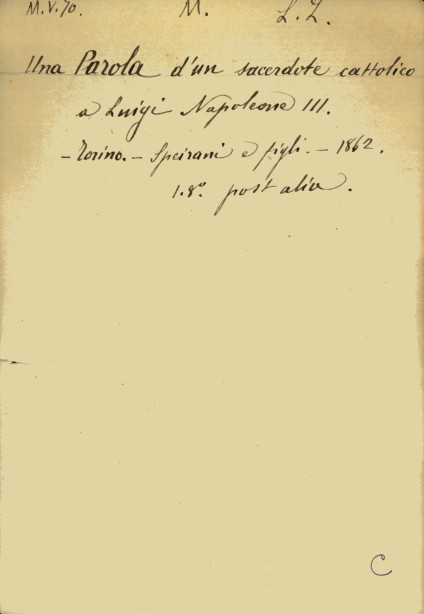 M.V.70. M. L. Z.
Una Parola d'un sacerdote cattolico
a Luigi Napoleone III.
- Torino. - Speirani e figli. - 1862.
1.8°. post alia.
C